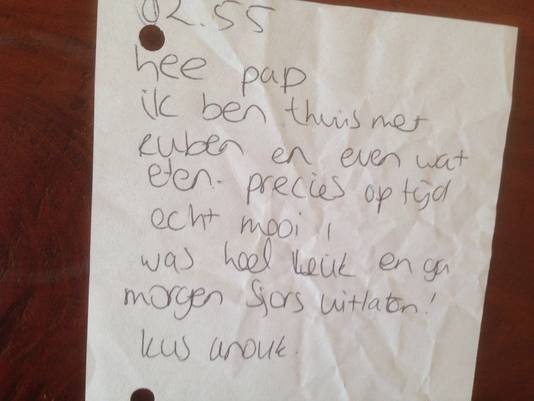 02.55
hee pap
ik ben thuis met
ruben en even wat
eten. precies op tijd
echt mooi!
was heel leuk en ga
morgen Sjors uitlaten!
kus anouk.